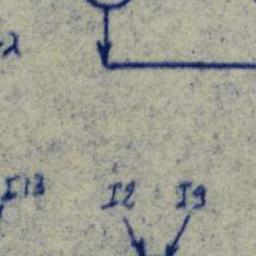 λ
I13
I2 I9